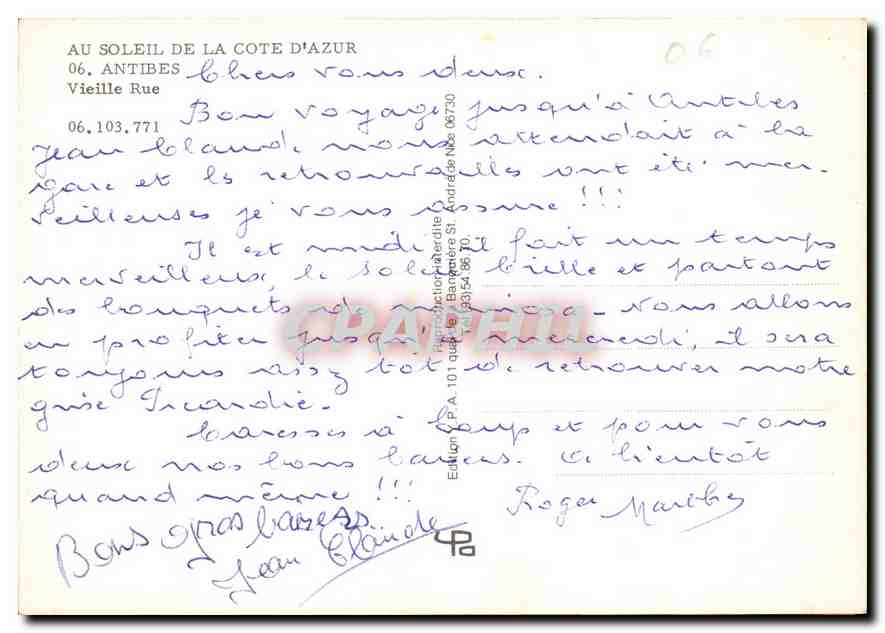 AU SOLEIL DE LA COTE D'AZUR
06. ANTIBES
Vieille Rue
06.103.771
06
Chers vous deux.
Bon voyage jusqu'à Antibes
Jean Claude nous attendait à la
gare et les retrouvailles ont été mer-
veilleuses je vous assure !!!
Il est midi, il fait un temps
merveilleux, le soleil brille et partout
des bouquets de mimosa - nous allons
en profiter jusqu'à mercredi, il sera
toujours assez tôt de retrouver notre
grise Picardie -
Caresses à Loup et pour vous
deux nos bons baisers. A bientôt
quand même !!!
Roger Marthe
Bons gros baisers
Jean Claude
Edition C.P.A. 101 quai de la Banquière St. André de Nice 06730
Reproduction interdite
Tél. (93) 54.86.70.
cpa
CPAPHIL